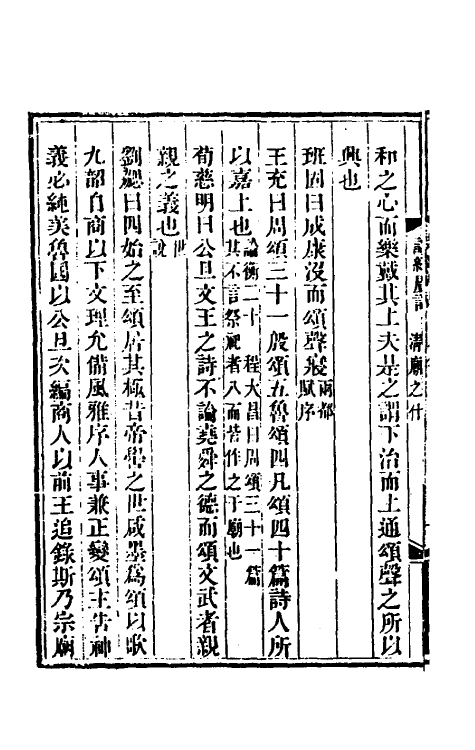 和之心而樂戴其上夫是之謂下治而上通頌聲之所以
興也
班固曰成康沒而頌聲寢兩都賦序
王充曰周頌三十一殷頌五魯頌四凡頌四十篇詩人所
以嘉上也論衡二十 程大昌曰周頌三十一篇其不言祭祀者八而皆作之于廟也
荀慈明曰公旦文王之詩不論堯舜之德而頌文武者親
親之義也世說
劉勰曰四始之至頌居其極昔帝嚳之世咸墨為頌以歌
九韶自商以下文理允備風雅序人事兼正變頌主告神
義必純美魯國以公旦次編商人以前王追錄斯乃宗廟
清廟之什